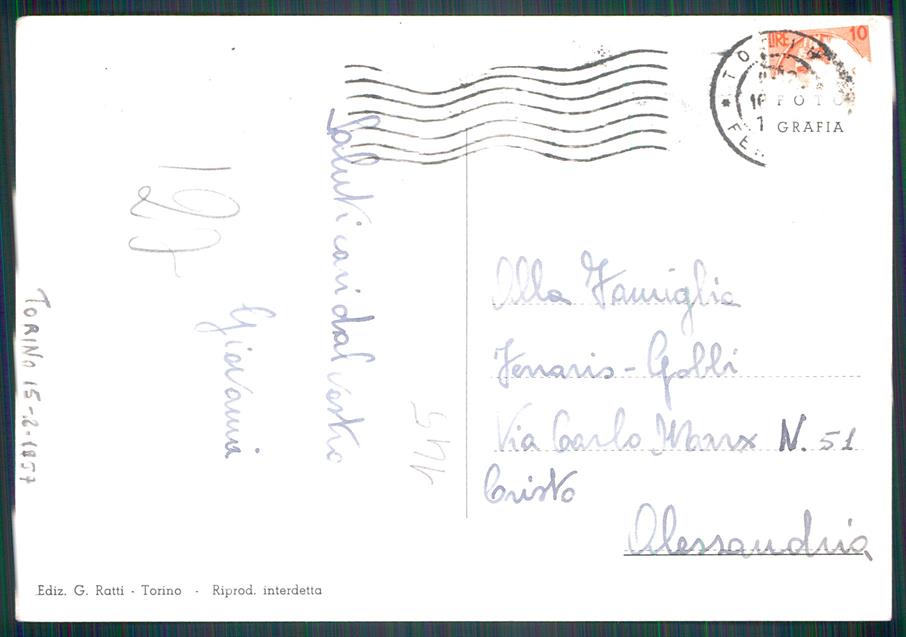 LIRE
10
TORINO
FOTO
GRAFIA
Saluti cari dal vostro
Giovanni
TORINO 15-2-1957
Alla Famiglia
Ferraris - Gobbi
Via Carlo Marx N. 51
Cristo
Alessandria
Ediz. G. Ratti - Torino - Riprod. interdetta